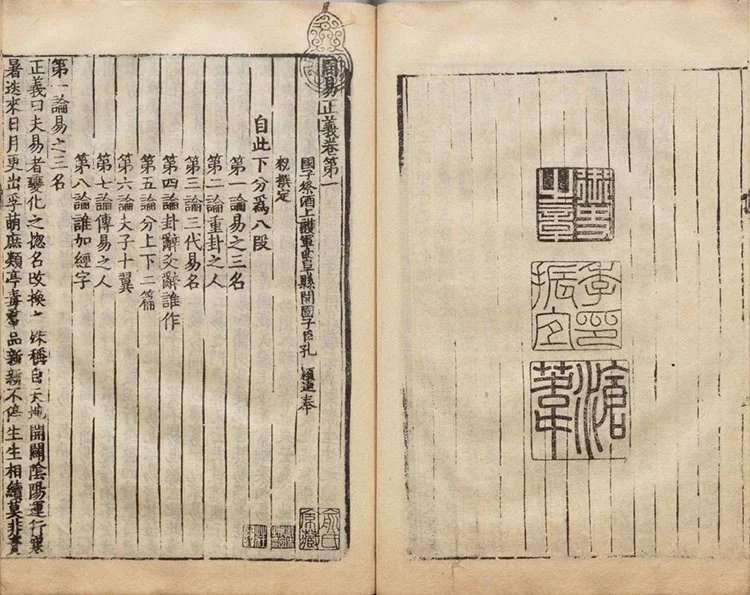 季印振宜
滄葦
周易正義卷第一
國子祭酒上護軍曲阜縣開國子臣孔 穎達奉
敕撰定
自此下分爲八段
第一論易之三名
第二論重卦之人
第三論三代易名
第四論卦辭爻辭誰作
第五論分上下二篇
第六論夫子十翼
第七論傳易之人
第八論誰加經字
第一論易之三名
正義曰夫易者變化之揔名改換之殊稱自天地開闢陰陽運行寒
暑迭來日月更出孚萌庶類亭毒羣品新新不停生生相續莫非資